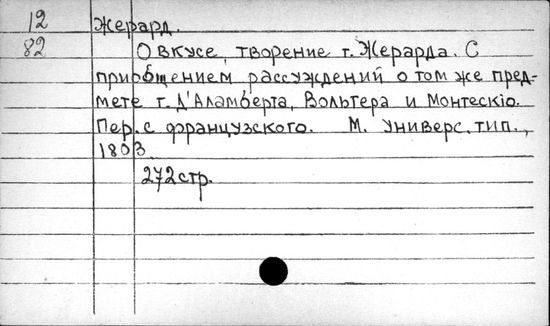 12 Жерард.
82 О вкусе, творение г. Жерарда. С
приобщением рассуждений о том же пред-
мете г. Д'Аламберта, Вольтера и Монтескiю.
Пер. с французского. М. Универс. тип.,
1803
272 стр.